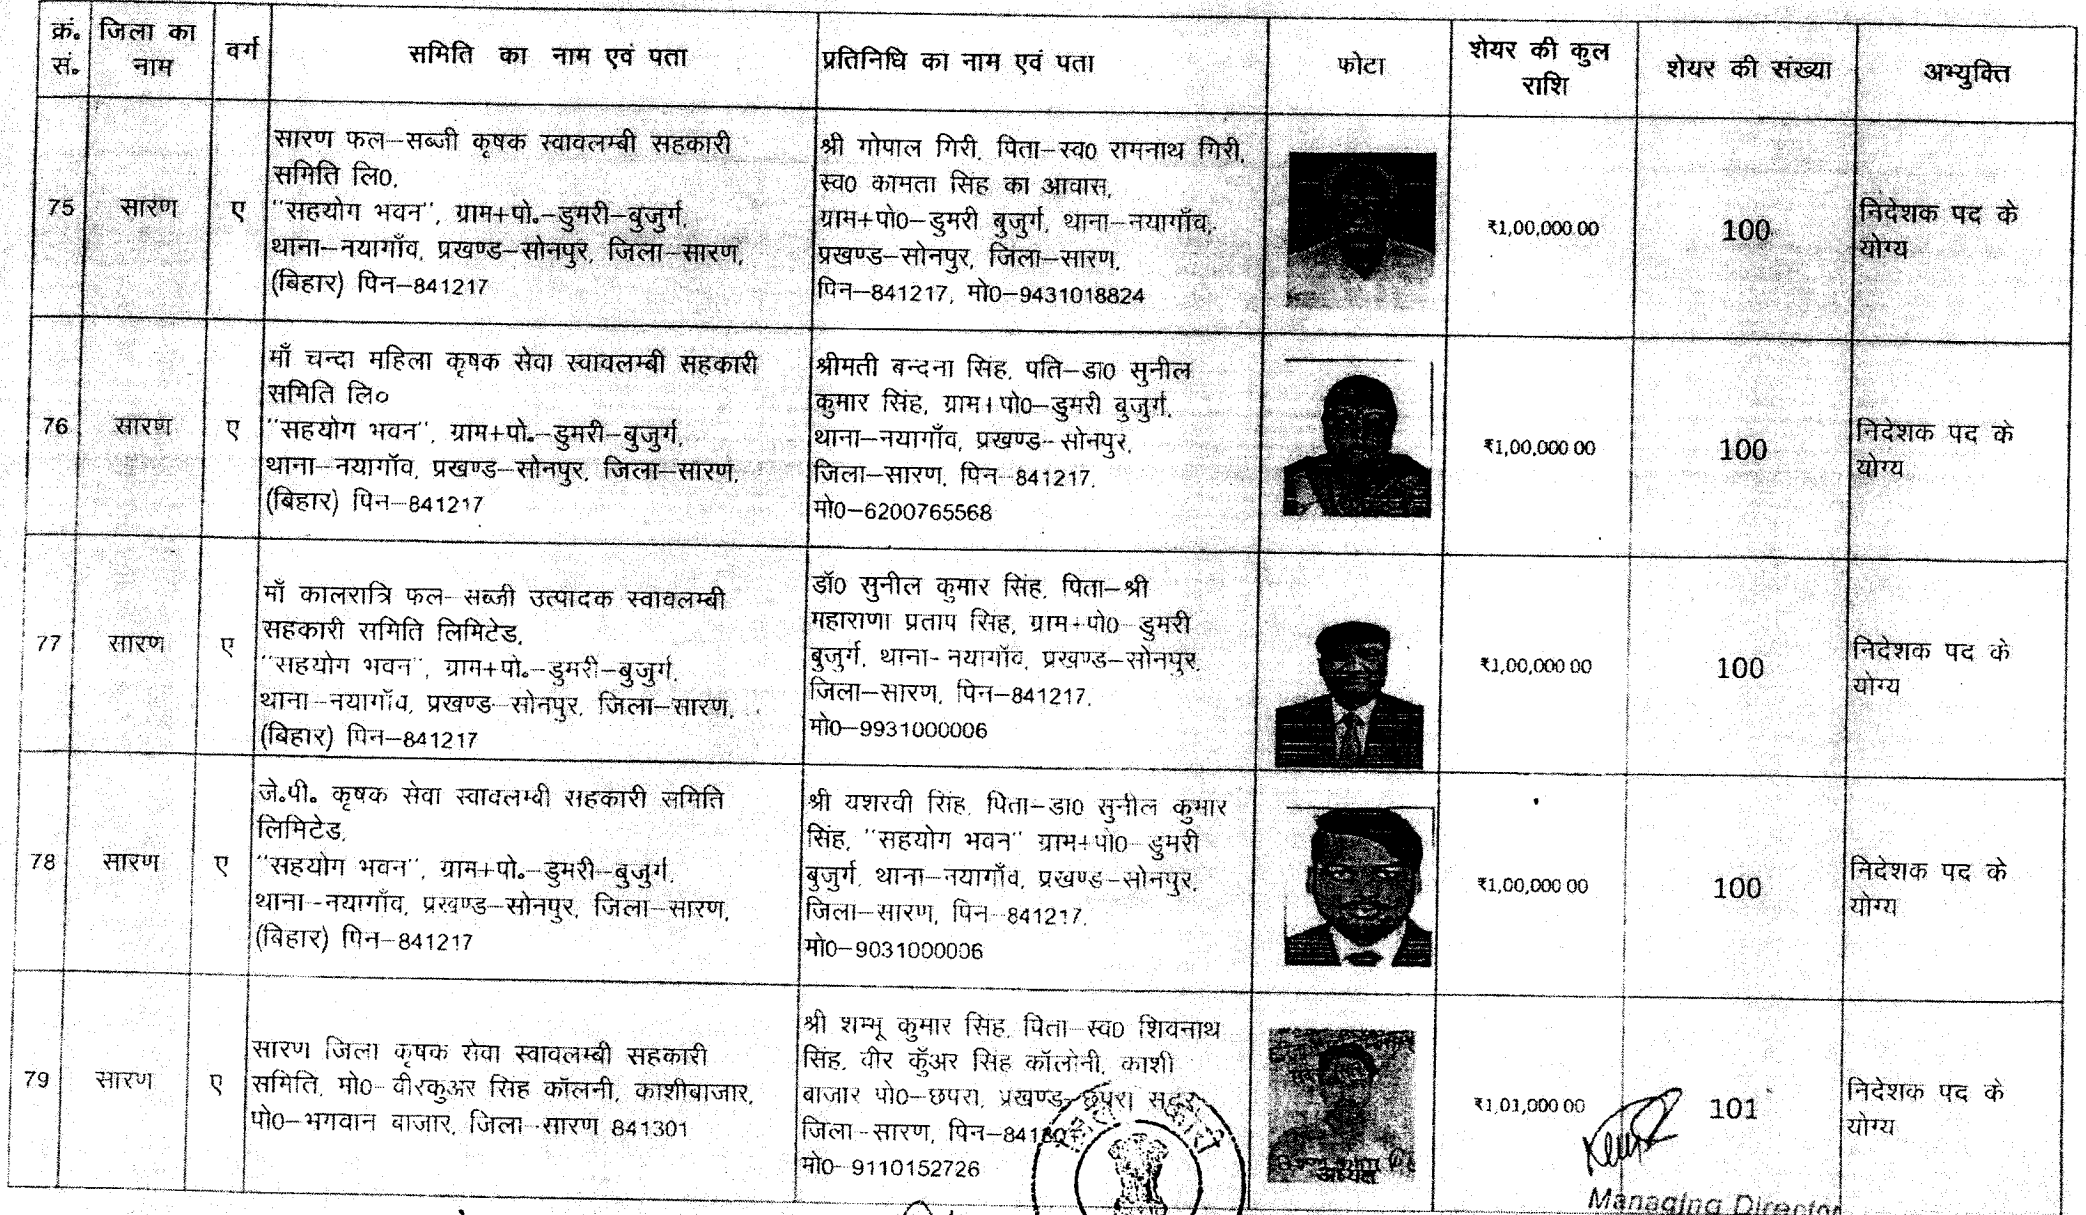 क्रं. सं.
जिला का नाम
वर्ग
समिति का नाम एवं पता
प्रतिनिधि का नाम एवं पता
फोटा
शेयर की कुल राशि
शेयर की संख्या
अभ्युक्ति
75
सारण
ए
सारण फल–सब्जी कृषक स्वावलम्बी सहकारी
समिति लि0,
"सहयोग भवन", ग्राम+पो.–डुमरी–बुजुर्ग,
थाना–नयागाँव, प्रखण्ड–सोनपुर, जिला–सारण,
(बिहार) पिन–841217
श्री गोपाल गिरी, पिता–स्व0 रामनाथ गिरी,
स्व0 कामता सिंह का आवास,
ग्राम+पो0–डुमरी बुजुर्ग, थाना–नयागाँव,
प्रखण्ड–सोनपुर, जिला–सारण,
पिन–841217, मो0–9431018824
₹1,00,000.00
100
निदेशक पद के
योग्य
76
सारण
ए
माँ चन्दा महिला कृषक सेवा स्वावलम्बी सहकारी
समिति लि०
"सहयोग भवन", ग्राम+पो.–डुमरी–बुजुर्ग,
थाना–नयागाँव, प्रखण्ड–सोनपुर, जिला–सारण,
(बिहार) पिन–841217
श्रीमती बन्दना सिंह, पति–डा0 सुनील
कुमार सिंह, ग्राम+पो0–डुमरी बुजुर्ग,
थाना–नयागाँव, प्रखण्ड–सोनपुर,
जिला–सारण, पिन–841217,
मो0–6200765568
₹1,00,000.00
100
निदेशक पद के
योग्य
77
सारण
ए
माँ कालरात्रि फल–सब्जी उत्पादक स्वावलम्बी
सहकारी समिति लिमिटेड,
"सहयोग भवन", ग्राम+पो.–डुमरी–बुजुर्ग,
थाना–नयागाँव, प्रखण्ड–सोनपुर, जिला–सारण,
(बिहार) पिन–841217
डॉ0 सुनील कुमार सिंह, पिता–श्री
महाराणा प्रताप सिंह, ग्राम+पो0–डुमरी
बुजुर्ग, थाना–नयागाँव, प्रखण्ड–सोनपुर,
जिला–सारण, पिन–841217,
मो0–9931000006
₹1,00,000.00
100
निदेशक पद के
योग्य
78
सारण
ए
जे.पी. कृषक सेवा स्वावलम्बी सहकारी समिति
लिमिटेड,
"सहयोग भवन", ग्राम+पो.–डुमरी–बुजुर्ग,
थाना–नयागाँव, प्रखण्ड–सोनपुर, जिला–सारण,
(बिहार) पिन–841217
श्री यशस्वी सिंह, पिता–डा0 सुनील कुमार
सिंह, "सहयोग भवन" ग्राम+पो0–डुमरी
बुजुर्ग, थाना–नयागाँव, प्रखण्ड–सोनपुर,
जिला–सारण, पिन–841217,
मो0–9031000006
₹1,00,000.00
100
निदेशक पद के
योग्य
79
सारण
ए
सारण जिला कृषक सेवा स्वावलम्बी सहकारी
समिति, मो0–वीरकुअर सिंह कॉलनी, काशीबाजार,
पो0–भगवान बाजार, जिला–सारण 841301
श्री शम्भू कुमार सिंह, पिता–स्व0 शिवनाथ
सिंह, वीर कुँअर सिंह कॉलोनी, काशी
बाजार पो0–छपरा, प्रखण्ड–छपरा सदर,
जिला–सारण, पिन–841301
मो0–9110152726
अध्यक्ष
₹1,01,000.00
101
निदेशक पद के
योग्य
Managing Director